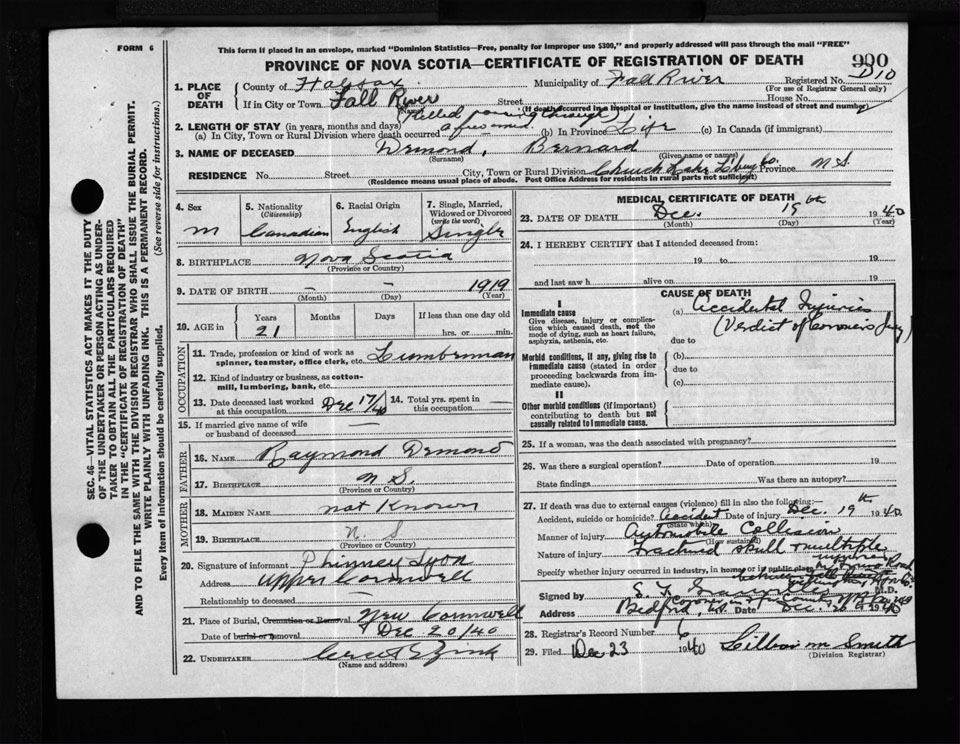 FORM 6
This form if placed in an envelope, marked "Dominion Statistics—Free, penalty for improper use $300," and properly addressed will pass through the mail "FREE"
PROVINCE OF NOVA SCOTIA—CERTIFICATE OF REGISTRATION OF DEATH
900
D10
1. PLACE OF DEATH County of Halifax Municipality of Fall River Registered No.
(For use of Registrar General only)
If in City or Town Fall River Street House No.
(If death occurred in a hospital or institution, give the name instead of street and number)
(Killed passing through)
2. LENGTH OF STAY (in years, months and days)
(a) In City, Town or Rural Division where death occurred a few min. (b) In Province Life (c) In Canada (if immigrant)
3. NAME OF DECEASED Demond, Bernard
(Surname) (Given name or names)
RESIDENCE No. Street City, Town or Rural Division Church Lake Co. Province N.S.
(Residence means usual place of abode. Post Office Address for residents in rural parts not sufficient)
4. Sex M
5. Nationality (Citizenship) Canadian
6. Racial Origin English
7. Single, Married, Widowed or Divorced (write the word) Single
8. BIRTHPLACE Nova Scotia
(Province or Country)
9. DATE OF BIRTH – – 1919
(Month) (Day) (Year)
10. AGE in Years Months Days If less than one day old
21 hrs. or min.
OCCUPATION
11. Trade, profession or kind of work as spinner, teamster, office clerk, etc. Lumberman
12. Kind of industry or business, as cotton-mill, lumbering, bank, etc.
13. Date deceased last worked at this occupation Dec 17/40 14. Total yrs. spent in this occupation
15. If married give name of wife or husband of deceased —
FATHER
16. NAME Raymond Demond
17. BIRTHPLACE N S.
(Province or Country)
MOTHER
18. MAIDEN NAME not Known
19. BIRTHPLACE N. S
(Province or Country)
20. Signature of informant Phinney Lyon
Address Upper Cornwell
Relationship to deceased —
21. Place of Burial, Cremation or Removal New Cornwell
Date of burial or removal Dec 20/40
22. UNDERTAKER
(Name and address)
MEDICAL CERTIFICATE OF DEATH
23. DATE OF DEATH Dec. 19th 1940
(Month) (Day) (Year)
24. I HEREBY CERTIFY that I attended deceased from:
19 to 19
and last saw h alive on 19
CAUSE OF DEATH
I
Immediate cause
Give disease, injury or complication which caused death, not the mode of dying, such as heart failure, asphyxia, asthenia, etc.
(a) Accidental Injuries
(Verdict of Coroners Jury)
due to
Morbid conditions, if any, giving rise to immediate cause (stated in order proceeding backwards from immediate cause).
(b)
due to
(c)
II
Other morbid conditions (if important) contributing to death but not causally related to immediate cause.
25. If a woman, was the death associated with pregnancy?
26. Was there a surgical operation? Date of operation 19
State findings Was there an autopsy?
27. If death was due to external causes (violence) fill in also the following:—
Accident, suicide or homicide? Accident Date of injury Dec. 19th 1940
(State which)
Manner of injury Automobile Collision
(How sustained)
Nature of injury Fractured skull multiple injuries
Specify whether injury occurred in industry, in home or in public place
Signed by M.D.
Address Bedford, N.S. Date Dec. 20 1940
28. Registrar's Record Number 6
29. Filed Dec 23 1940 Lillian M Smith
(Division Registrar)
SEC. 46—VITAL STATISTICS ACT MAKES IT THE DUTY
OF THE UNDERTAKER OR PERSON ACTING AS UNDERTAKER TO OBTAIN ALL THE PARTICULARS REQUIRED
IN THE "CERTIFICATE OF REGISTRATION OF DEATH"
AND TO FILE THE SAME WITH THE DIVISION REGISTRAR WHO SHALL ISSUE THE BURIAL PERMIT.
WRITE PLAINLY WITH UNFADING INK. THIS IS A PERMANENT RECORD.
Every item of information should be carefully supplied. (See reverse side for instructions.)